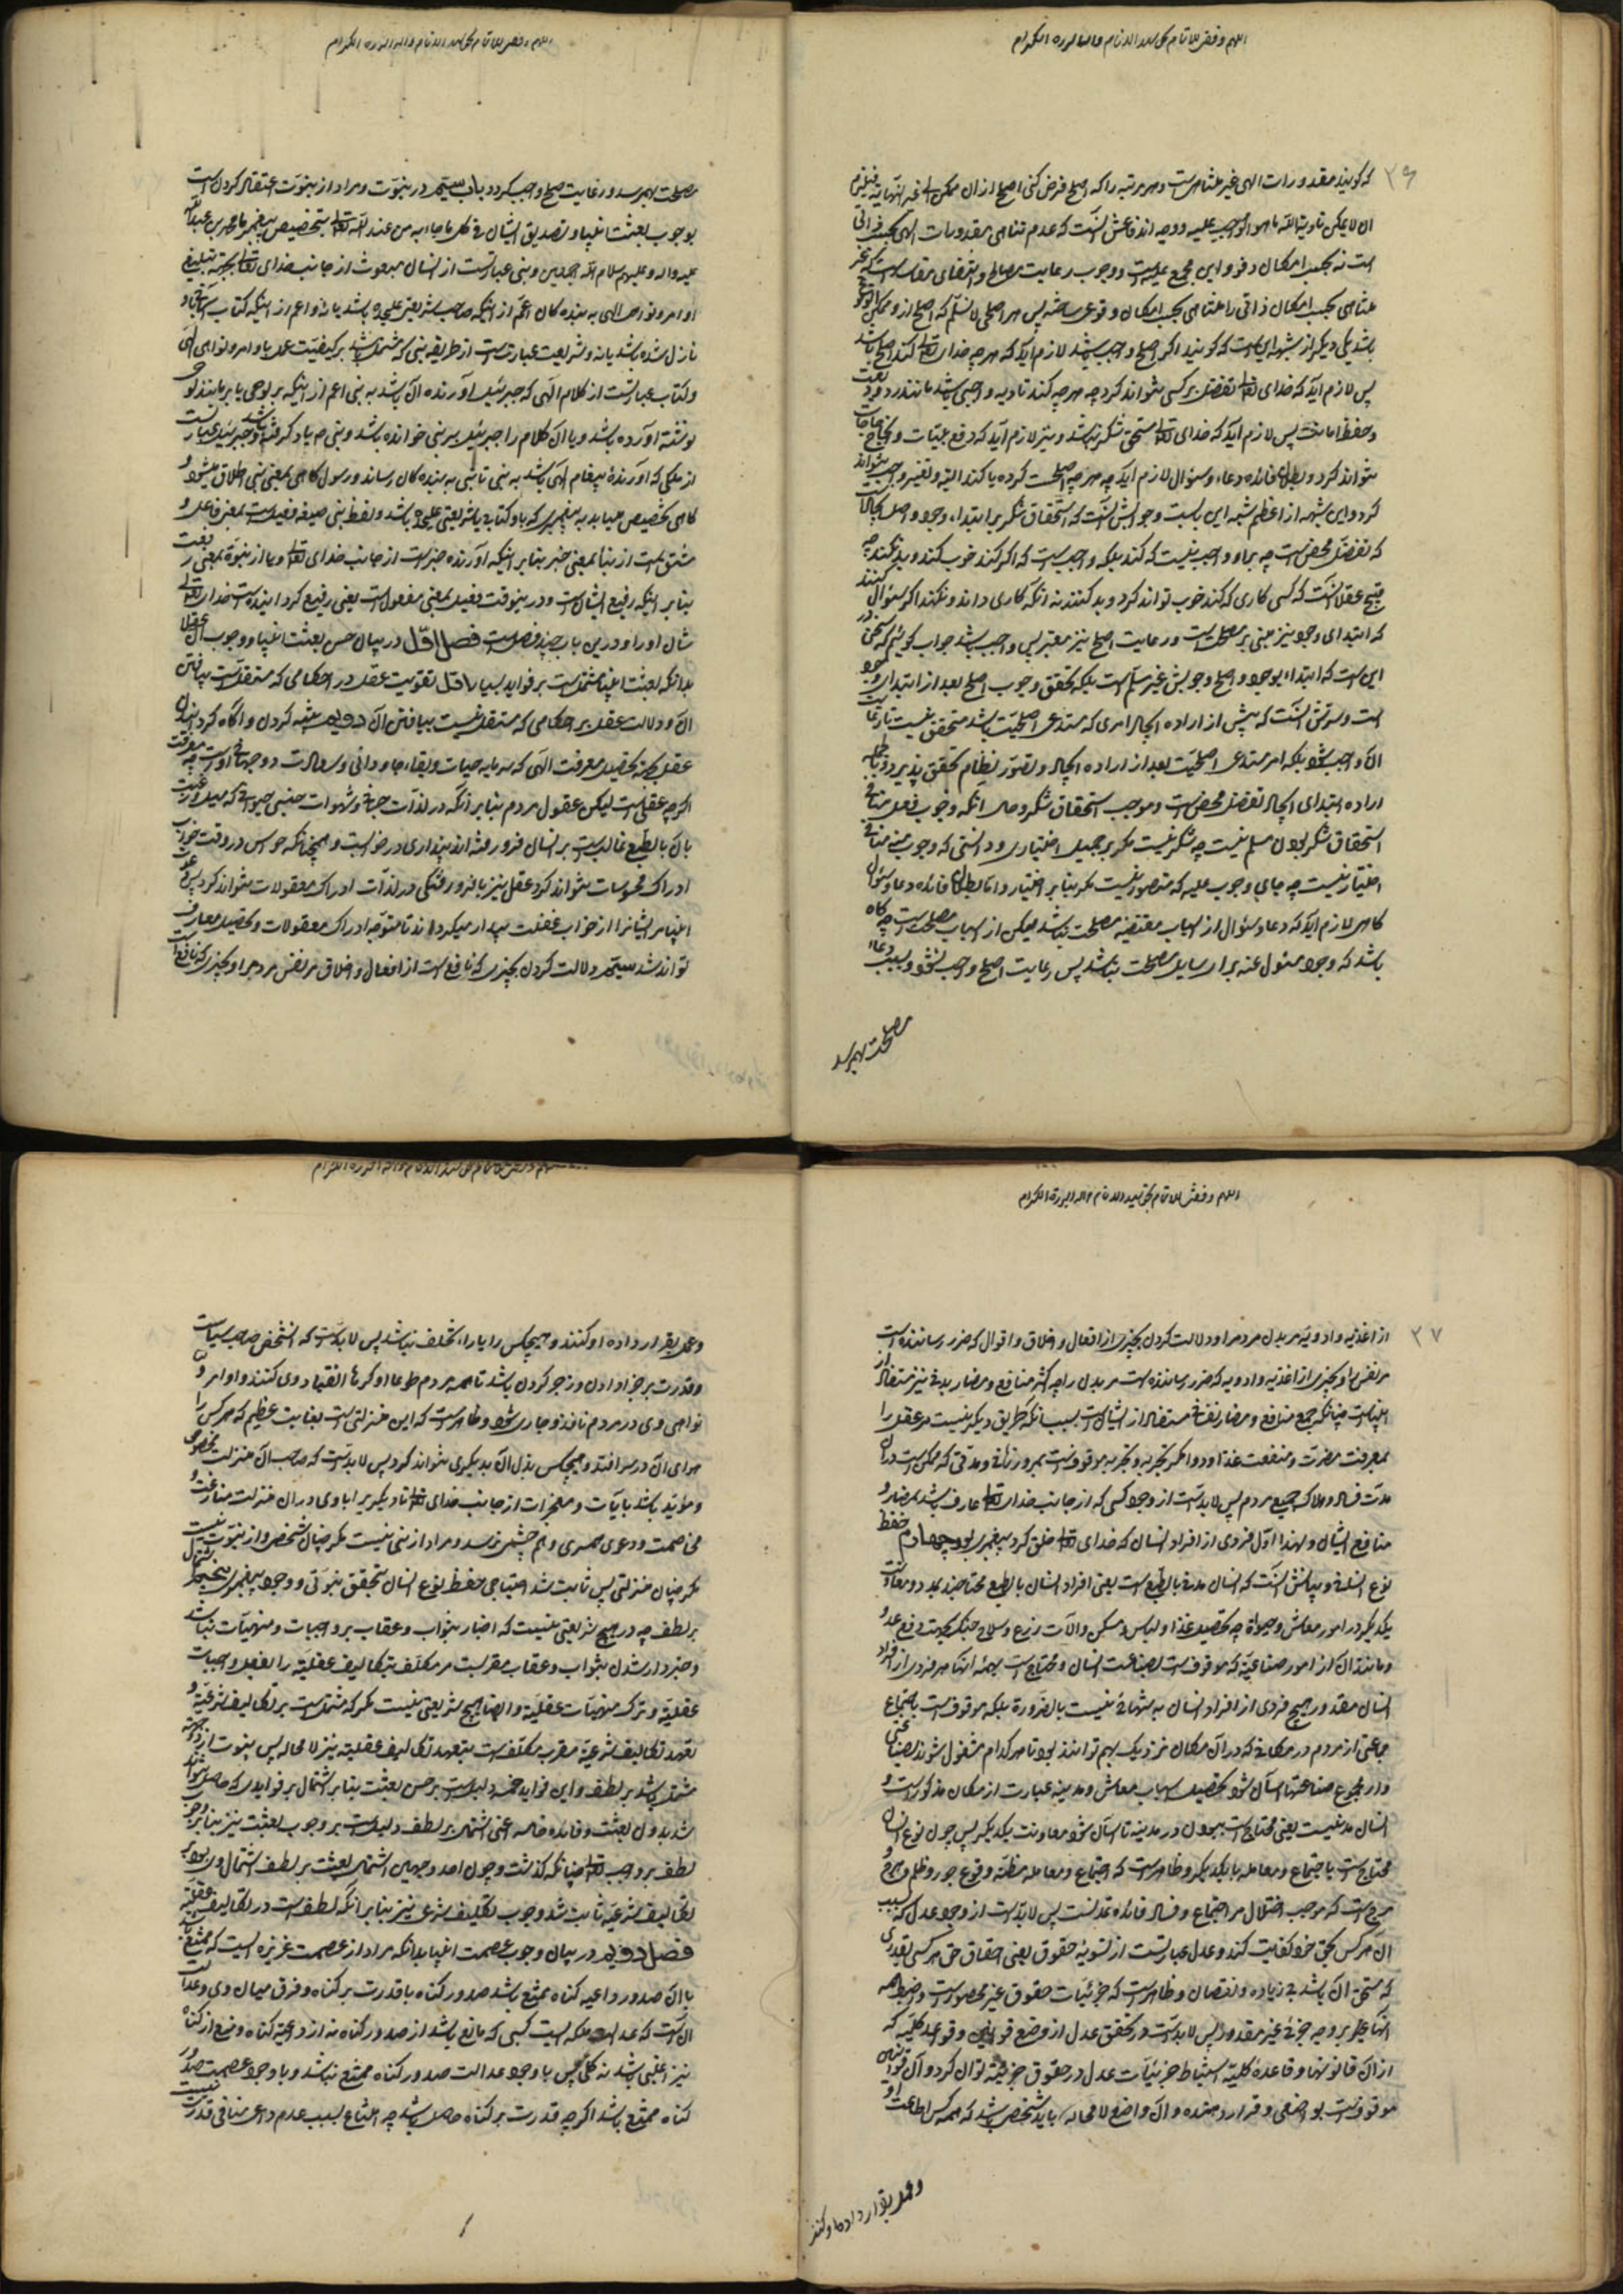 ۳۶
که گویند مقدورات الهی غیر متناهیست و هر مرتبه را که اصلح فرض کنی اصلح از ان ممکن
ان لا یمکن تادیة الله ما هو الواجب علیه و وجه اندفاعش آنست که عدم تناهی مقدورات الهی بحسب ذاتی
است نه بحسب امکان وقوع و این مجمع علیه است و وجوب رعایت مصالح و اقتضای
متناهی بحسب امکان ذاتی را متناهی بحسب امکان وقوعی پس هر اصلحی لا نسلّم که اصلح از و ممکن
باشد یکی دیگر از شبهه ایشان است که گویند اگر اصلح واجب باشد لازم آید که هر چه خدای تعالی کند اصلح باشد
پس لازم آید که خدای تعالی تفضل بر کسی نتواند کرد چه هر چه کند تادیه واجبی باشد مانند رد ودیعت
و حفظ امانت پس لازم آید که خدای تعالی مستحق شکر نباشد و نیز لازم آید که دفع بلیات و
نتواند کرد و بطلان فائده دعاء و سؤال لازم آید چه هر چه اصلحست کرده یا کند البته و تغییر واجب نتواند
کرد و این شبهه از اعظم شبه این بابست و جوابش آنست که استحقاق شکر بر ابتداء وجود و اصل ایجاد است
که تفضل محض است چه بر او واجب نیست که کند بلکه واجبست که اگر کند خوب کند و بد نکند چه
قبیح عقلا آنست که کسی کاری که کند خوب تواند کرد و بد کند نه آنکه کاری داند و نکند اگر سؤال کنند
که ابتدای وجود نیز مبنی بر مصلحت است و رعایت اصلح نیز معتبر پس واجب باشد جواب گوئیم که سخن در
این است که ابتداء بوجود و اصلح وجوبش غیر مسلّم است بلکه تحقق وجوب اصلح بعد از ابتدای وجود
است و سرّش آنست که پیش از اراده ایجاد امری که مستدعی اصلحیّت باشد متحقق نیست تا رعایت
آن واجب شود بلکه امر مستدعی اصلحیّت بعد از اراده ایجاد و تصوّر نظام تحقق پذیرد و بالجمله
اراده ابتدای ایجاد تفضل محض است و موجب استحقاق شکر و حال آنکه وجوب فعل منافی
استحقاق شکر بودن مسلم نیست چه شکر نیست مگر بر جمیل اختیاری و دانستی که وجوب منه منافی
اختیار نیست چه جای وجوب علیه که متصور نیست مگر بنا بر اختیار و اما بطلان فائده دعا و سؤال
گاهی لازم آید که دعا و سؤال از اسباب مقتضیه مصلحت نباشد لیکن از اسباب مصلحت است چه گاه
باشد که وجود مسئول عنه برای سایل مصلحت نباشد پس رعایت اصلح واجب نشود و بسبب دعا
مصلحت بهم رسد
مصلحت بهم رسد و رعایت صلح واجب گردد باب سیّم در نبوّت و مراد از نبوّت اعتقاد کردن است
بوجوب بعثت انبیا و تصدیق ایشان فی کل ما جاءا به من عند الله تعالی بتخصیص پیغمبر ما محمد بن عبدالله
علیه و اله و علیهم سلام الله اجمعین و نبی عبارتست از انسان مبعوث از جانب خدای تعالی بجهة تبلیغ
اوامر و نواهی الهی به بنده کان اعمّ از اینکه صاحب شریعتی علیحده باشد یا نه و اعم از اینکه کتاب آسمانی باو
نازل شده باشد یا نه و شریعت عبارتست از طریقه نبی که مشتمل باشد بر کیفیّت عمل باوامر و نواهی الهی
و کتاب عبارتست از کلام الهی که جبرئیل آورنده آن باشد به نبی اعم از اینکه بر لوحی یا بر مانند لوحی
نوشته آورده باشد و یا آن کلام را جبرئیل بر نبی خوانده باشد و نبی م یاد گرفته باشد و جبرئیل عبارتست
از ملکی که آورنده پیغام الهی باشد به نبی تا نبی به بنده کان رساند و رسول گاهی بمعنی نبی اطلاق میشود و
گاهی تخصیص میابد به پیغمبری که با و کتاب یا شریعتی علیحده باشد و لفظ نبی صیغه فعیلست بمعنی فاعل و
مشتق است از نبأ بمعنی خبر بنابر اینکه آورنده خبر است از جانب خدای تعالی و یا از نبوة بمعنی رفعت
بنابر اینکه رفیع الشان است و درینوقت فعیل بمعنی مفعول است یعنی رفیع گردانیده است خدای تعالی
شان او را و درین باب چند فصل است فصل اوّل در بیان حسن بعثت انبیا و وجوب آن عقلا
بدانکه بعثت انبیا مشتمل است بر فواید بسیار اوّل تقویت عقل در احکامی که مستقل است بیافتن
آن و دلالت عقل بر احکامی که مستقل نیست بیافتن آن دویم متنبه کردن و آگاه گردانیدن
عقل بجهة تحصیل معرفت الهی که سرمایه حیات و بقاء جاودانی و سعادت دوجهانی است چه معرفت
اگر چه عقلی است لیکن عقول مردم بنابر آنکه در لذّات جزئی و شهوات جنبی حیوانی که میل و رغبت
بان بالطبع غالبست بر انسان فرو رفته اند پنداری در خوابست و همچنانکه حواس در وقت خواب
ادراک محسوسات نتواند کرد عقل نیز با فرو رفتگی در لذّات ادراک معقولات نتواند کرد پس
انبیا مر ایشانرا از خواب غفلت بیدار میگردانند تا متوجّه ادراک معقولات و تحصیل معارف
توانند شد سیّم دلالت کردن بچیزی که نافع است از افعال و اخلاق مر نفس مردم را و بچیزی که نافع است
۳۷
از اغذیه و ادویه مر بدن مردم را و دلالت کردن بچیزی از افعال و اخلاق و اقوال که ضرر رساننده است
مر نفس را و بچیزی از اغذیه و ادویه که ضرر رساننده است مر بدن را چه اکثر منافع و مضار بدنی نیز مستفاد از
انبیاست چنانکه جمیع منافع و مضار نفسانی مستفاد از ایشان است بسبب آنکه طریق دیگر نیست مر عقل را
بمعرفت مضرّت و منفعت غذا و دوا مگر تجربه و تجربه موقوفست بمرور زمانی و مدّتی که ممکن است در آن
مدّت فساد و هلاک جمیع مردم پس لابد است از وجود کسی که از جانب خدای تعالی عارف باشد بمضار و
منافع ایشان و لهذا اوّل فردی از افراد انسان که خدای تعالی خلق کرد پیغمبر بود چهارم حفظ
نوع انسان و بیانش آنست که انسان مدنی بالطبع است یعنی افراد انسان بالطبع محتاجند بمدد و معاونت
یکدیگر در امور معاش و حیوة چه تحصیل غذا و لباس و مسکن و الآت زرع و سلاح جنگ بجهت دفع عدو
و مانند آن از امور صناعیّه که موقوف است بصناعت انسان و محتاج است بهمه آنها هر فردی از افراد
انسان مقدور هیچ فردی از افراد انسان به تنهائی نیست بالضرورة بلکه موقوف است باجتماع
جماعتی از مردم در مکانی که در آن مکان نزدیک بهم توانند بود تا هر کدام مشغول شوند بصناعتی
و از مجموع صناعتها آسان شود تحصیل اسباب معاش و مدینه عبارت از مکان مذکور است و
انسان مدنیست یعنی محتاج است ببودن در مدینه تا آسان شود معاونت یکدیگر پس چون نوع انسان
محتاج است باجتماع و معامله با یکدیگر و ظاهر است که اجتماع و معامله مظنّه وقوع جور و ظلم و هرج و
مرج است که موجب اختلال مر اجتماع و فساد فائده تمدنست پس لابد است از وجود عدل که بسبب
آن هر کس بحق خود کفایت کند و عدل عبارتست از تسویۀ حقوق یعنی احقاق حق هر کس بقدری
که مستحق آن باشد بی زیاده و نقصان و ظاهر است که جزئیات حقوق غیر محصور است و ضبط همه
آنها علی وجه جزئی غیر مقدور پس لابد است در تحقق عدل از وضع قوانین و قواعد کلیّه که
از آن قانونها و قاعدۀ کلیّه استنباط جزئیّات عدل در حقوق جزئیّه توان کرد و آن قوانین
موقوفست بواضعی و قرار دهنده و آن واضع لا محاله باید شخصی باشد که همه کس اطاعت او
و عمل بقرار داده او کنند
و عمل بقرار داده او کنند و هیچکس را یارا، تخلف نباشد پس لابد است که آنشخص صاحب سیاست
و قدرت بر جزا دادن و زجر کردن باشد تا همه مردم طوعا او کرها انقیاد وی کنند و اوامر و
نواهی وی در مردم نافذ و جاری شود و ظاهر است که این منزلتی است بغایت عظیم که هر کس را
هوای آن در سر افتد و هیچکس بذل آن بدیگری نتواند کرد پس لابد است که صاحب آن منزلت مخصوص
و مؤیّد باشد بآیات و معجزات از جانب خدای تعالی تا دیگریرا با وی در آن منزلت منازعت و
مخاصمت و دعوی همسری و هم چشمی نرسد و مراد از نبی نیست مگر چنان شخص و از نبوّت نیست
مگر چنان منزلتی پس ثابت شد احتیاج حفظ نوع انسان بتحقق نبوّتی و وجود پیغمبری پنجم اشتمال
بر لطف چه در هیچ شریعتی نیست که اخبار بثواب و عقاب بر واجبات و منهیّات نباشد
و خبردار شدن بثواب و عقاب مقربست مر مکلّف بتکالیف عقلیّه را بفعل واجبات
عقلیّه و ترک منهیّات عقلیّه و ایضا هیچ شریعتی نیست مگر که مشتمل است بر تکالیف شرعیّه و
تعهد تکالیف شرعیّه مقرب مکلف است بتعهد تکالیف عقلیّه نیز لا محاله پس نبوت از
مشتمل باشد بر لطف و این فواید خمسه دلیلست بر حسن بعثت بنابر اشتمال بر فوایدی که حاصل نتواند
شد بدون بعثت و فائده خامسه اعنی اشتمال بر لطف دلیلست بر وجوب بعثت نیز بنابر وجوب
لطف بر واجب تعالی چنانکه گذشت و چون احد وجهین اشتمال بعثت بر لطف اشتمال وی بود بر
تکالیف شرعیّه ثابت شد وجوب تکلیف شرعی نیز بنابر آنکه لطف است در تکالیف عقلیّه
فصل دویم در بیان وجوب عصمت انبیا بدانکه مراد از عصمت غریزه ایست که ممتنع باشد
با آن صدور داعیه گناه ممتنع باشد صدور گناه با قدرت بر گناه و فرق میان وی و عدالت
آن است که عدالت ملکه ایست کسبی که مانع باشد از صدور گناه نه از داعیه گناه و منع از گناه
نیز اغلبی باشد نه کلّی پس با وجود عدالت صدور گناه ممتنع نباشد و با وجود عصمت صدور
گناه ممتنع باشد اگر چه قدرت بر گناه حاصل باشد چه امتناع بسبب عدم داعی منافی قدرت نیست